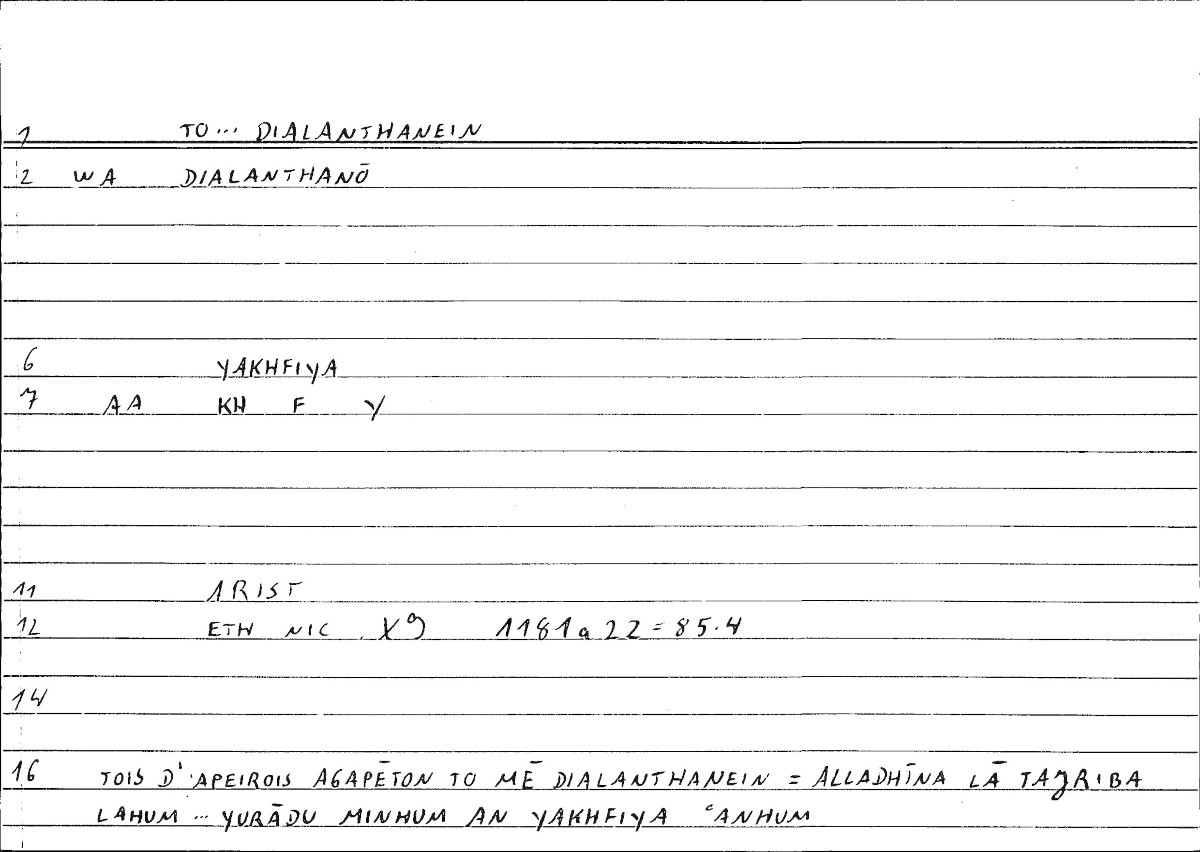 1 TO... DIALANTHANEIN
2 WA DIALANTHANŌ
6 YAKHFIYA
7 AA KH F Y
11 ARIST
12 ETH NIC X9 1181a22=85.4
14
16 TOIS D' APEIROIS AGAPĒTON TO MĒ DIALANTHANEIN = ALLADHĪNA LĀ TAJRIBA
LAHUM ... YURĀDU MINHUM AN YAKHFIYA ʿANHUM